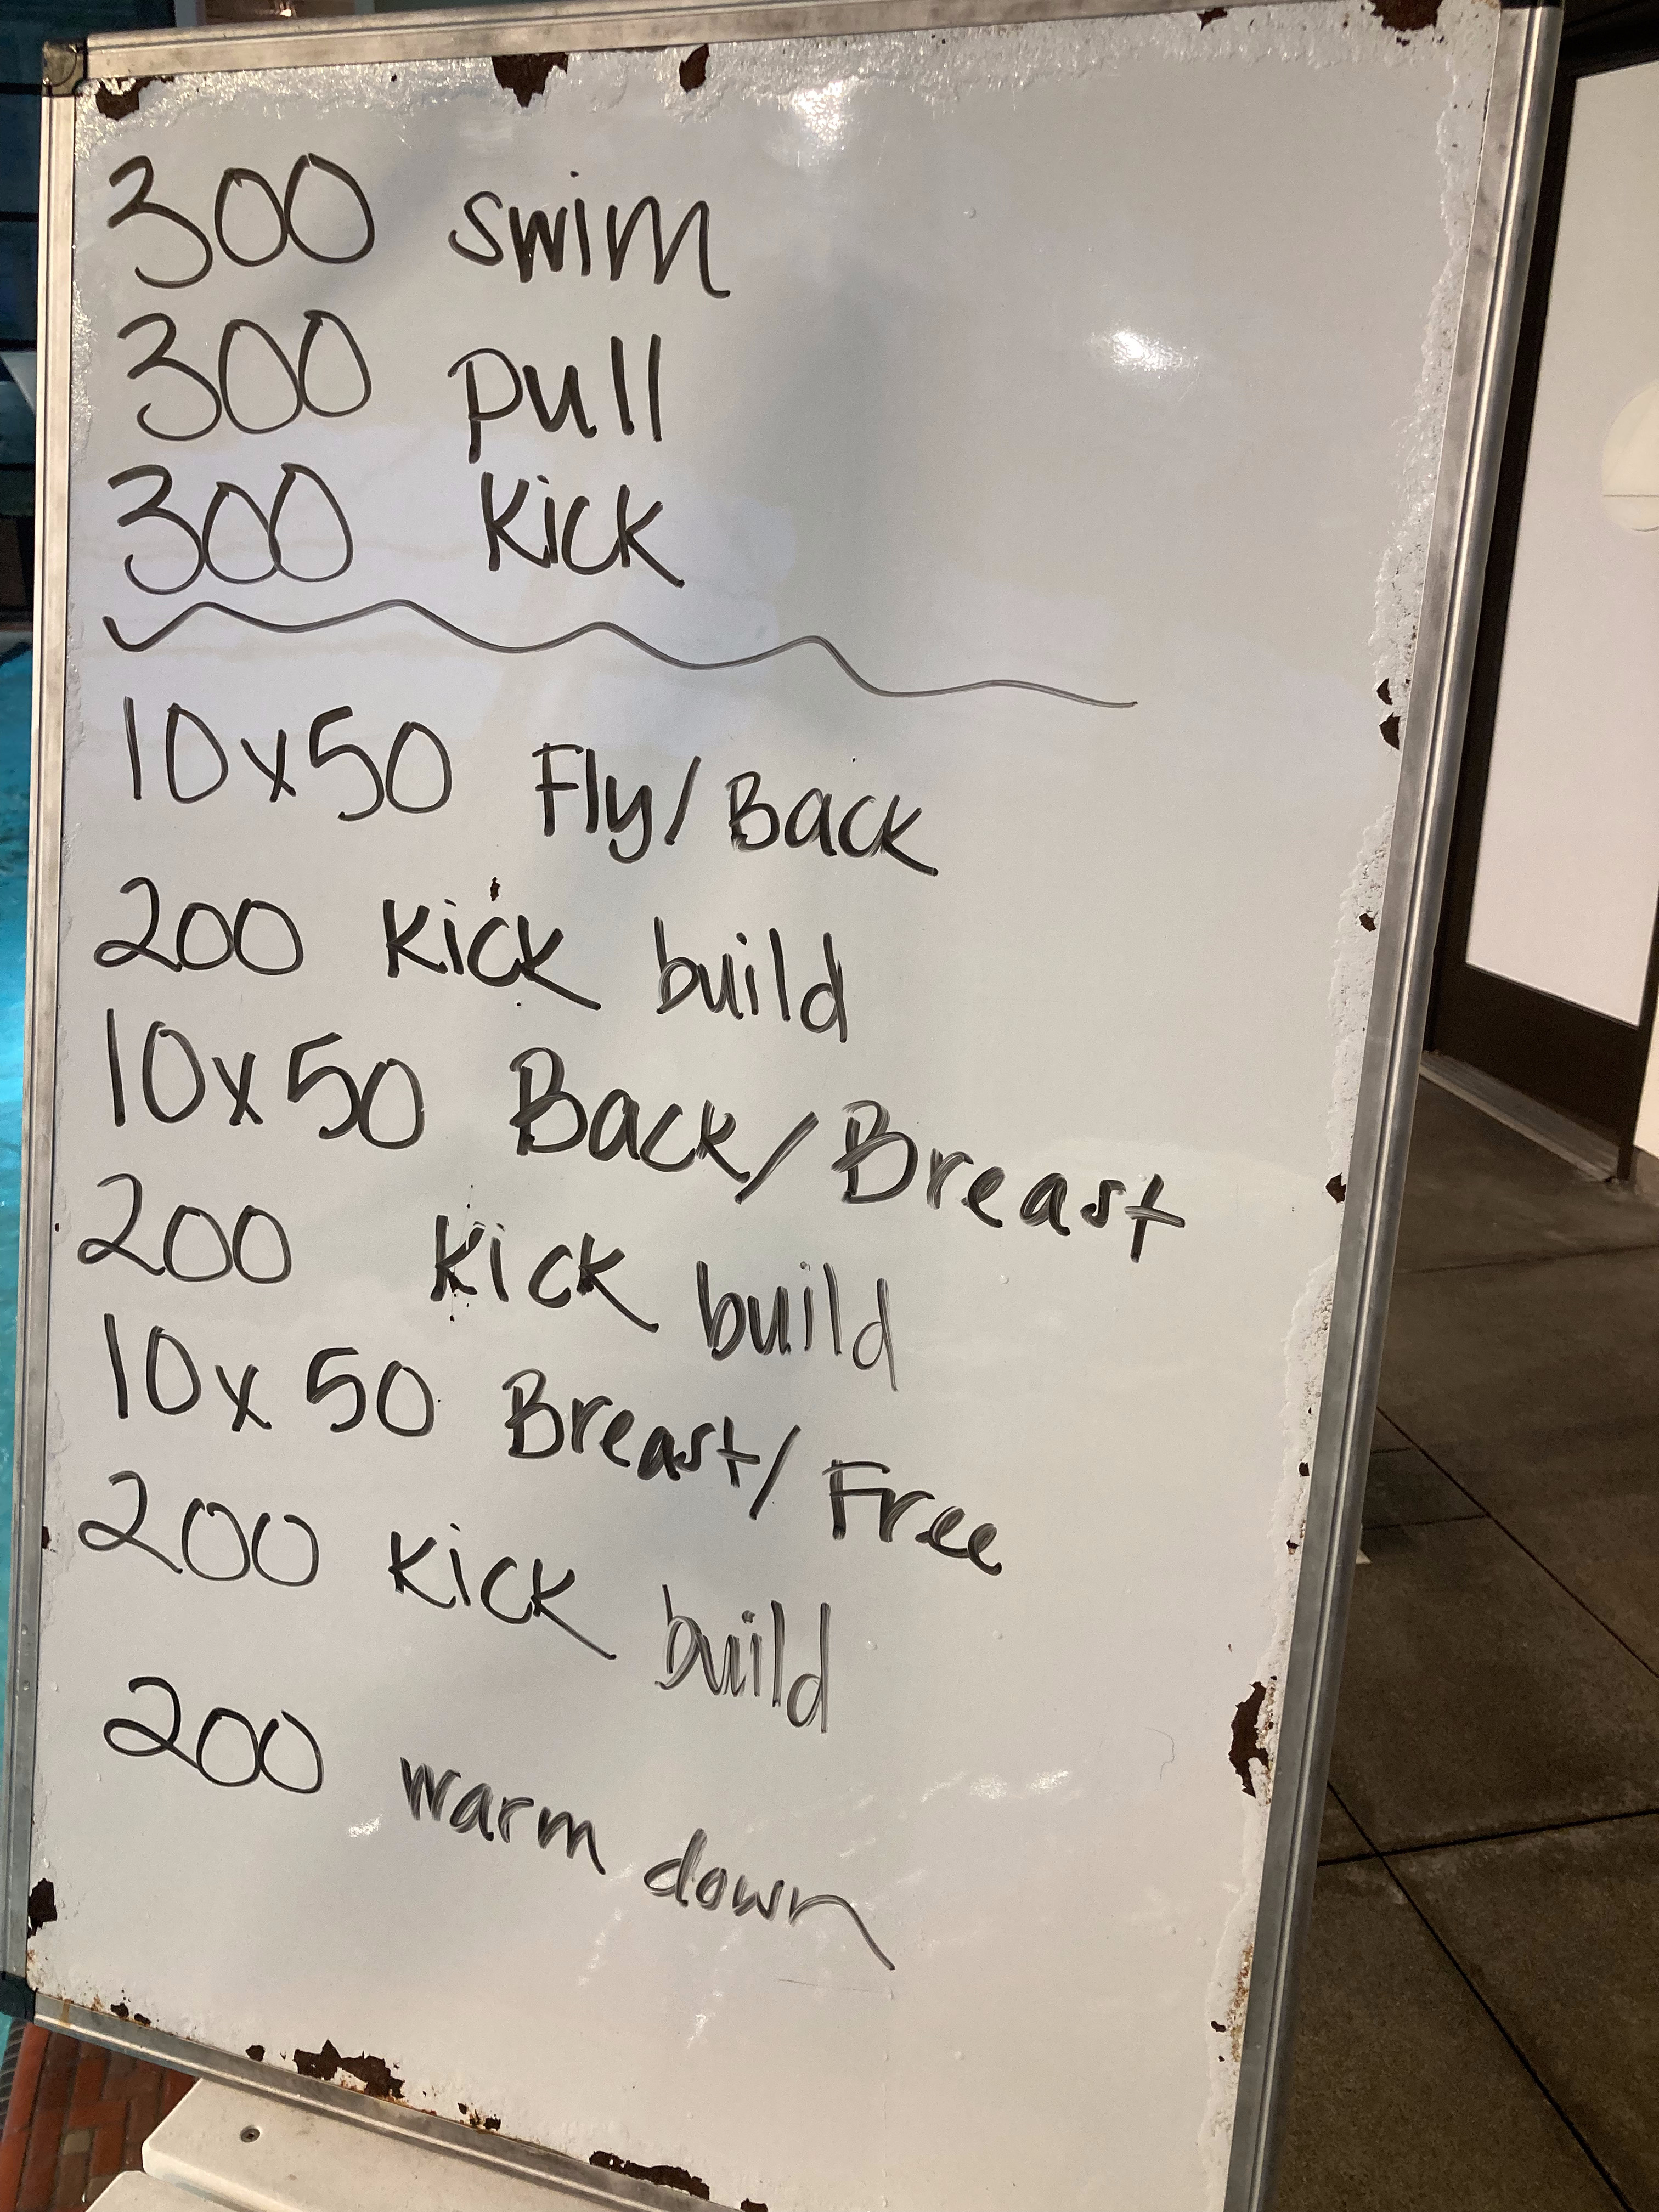 300 swim
300 pull
300 Kick
10x50 Fly/Back
200 Kick build
10x50 Back/Breast
200 Kick build
10x50 Breast/Free
200 Kick build
200 warm down